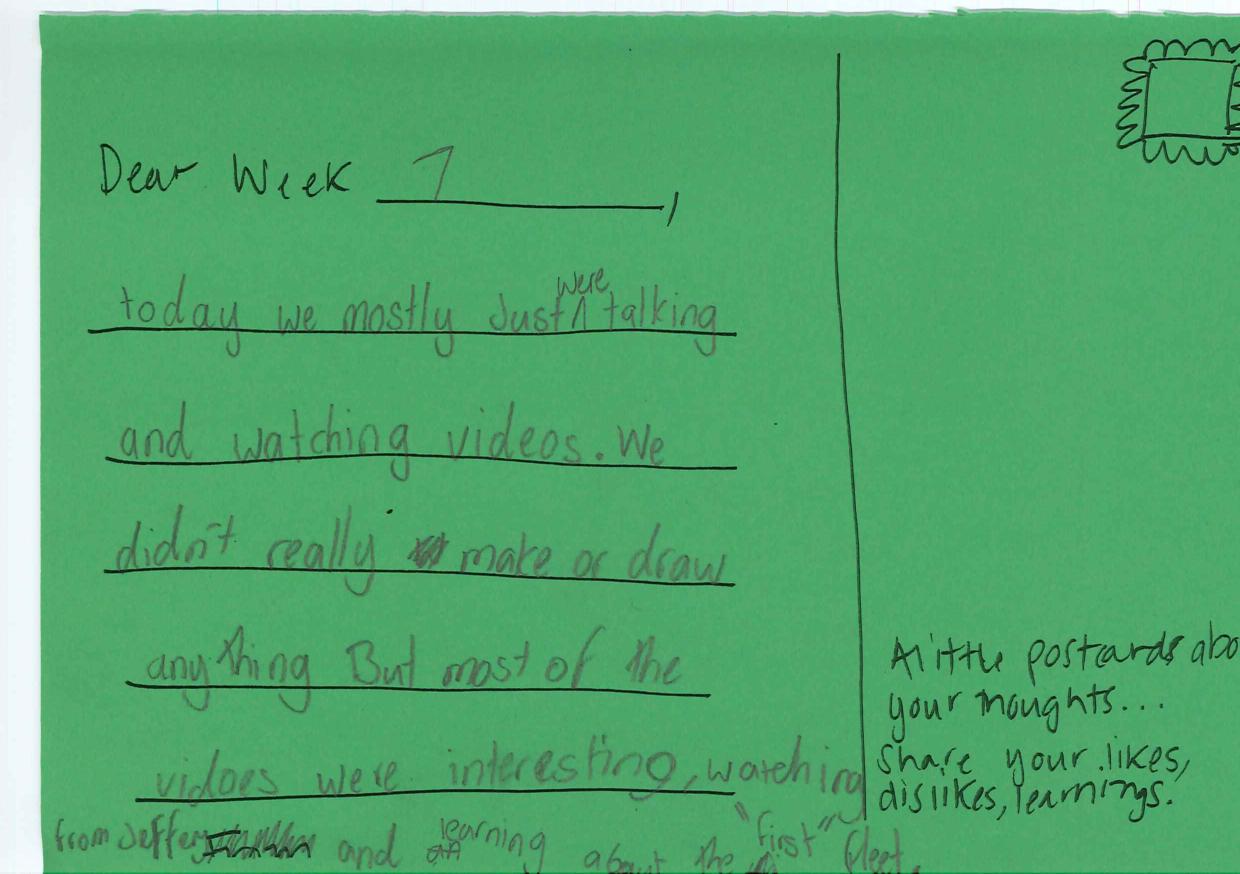 Dear Week 1,
today we mostly Just were talking
and watching videos. We
didn't really make or draw
anything But most of the
vidoes were interesting, watching
from Jeffery and learning about the "first" fleet.
A little postcards abo
your thoughts...
share your likes,
dislikes, learnings.